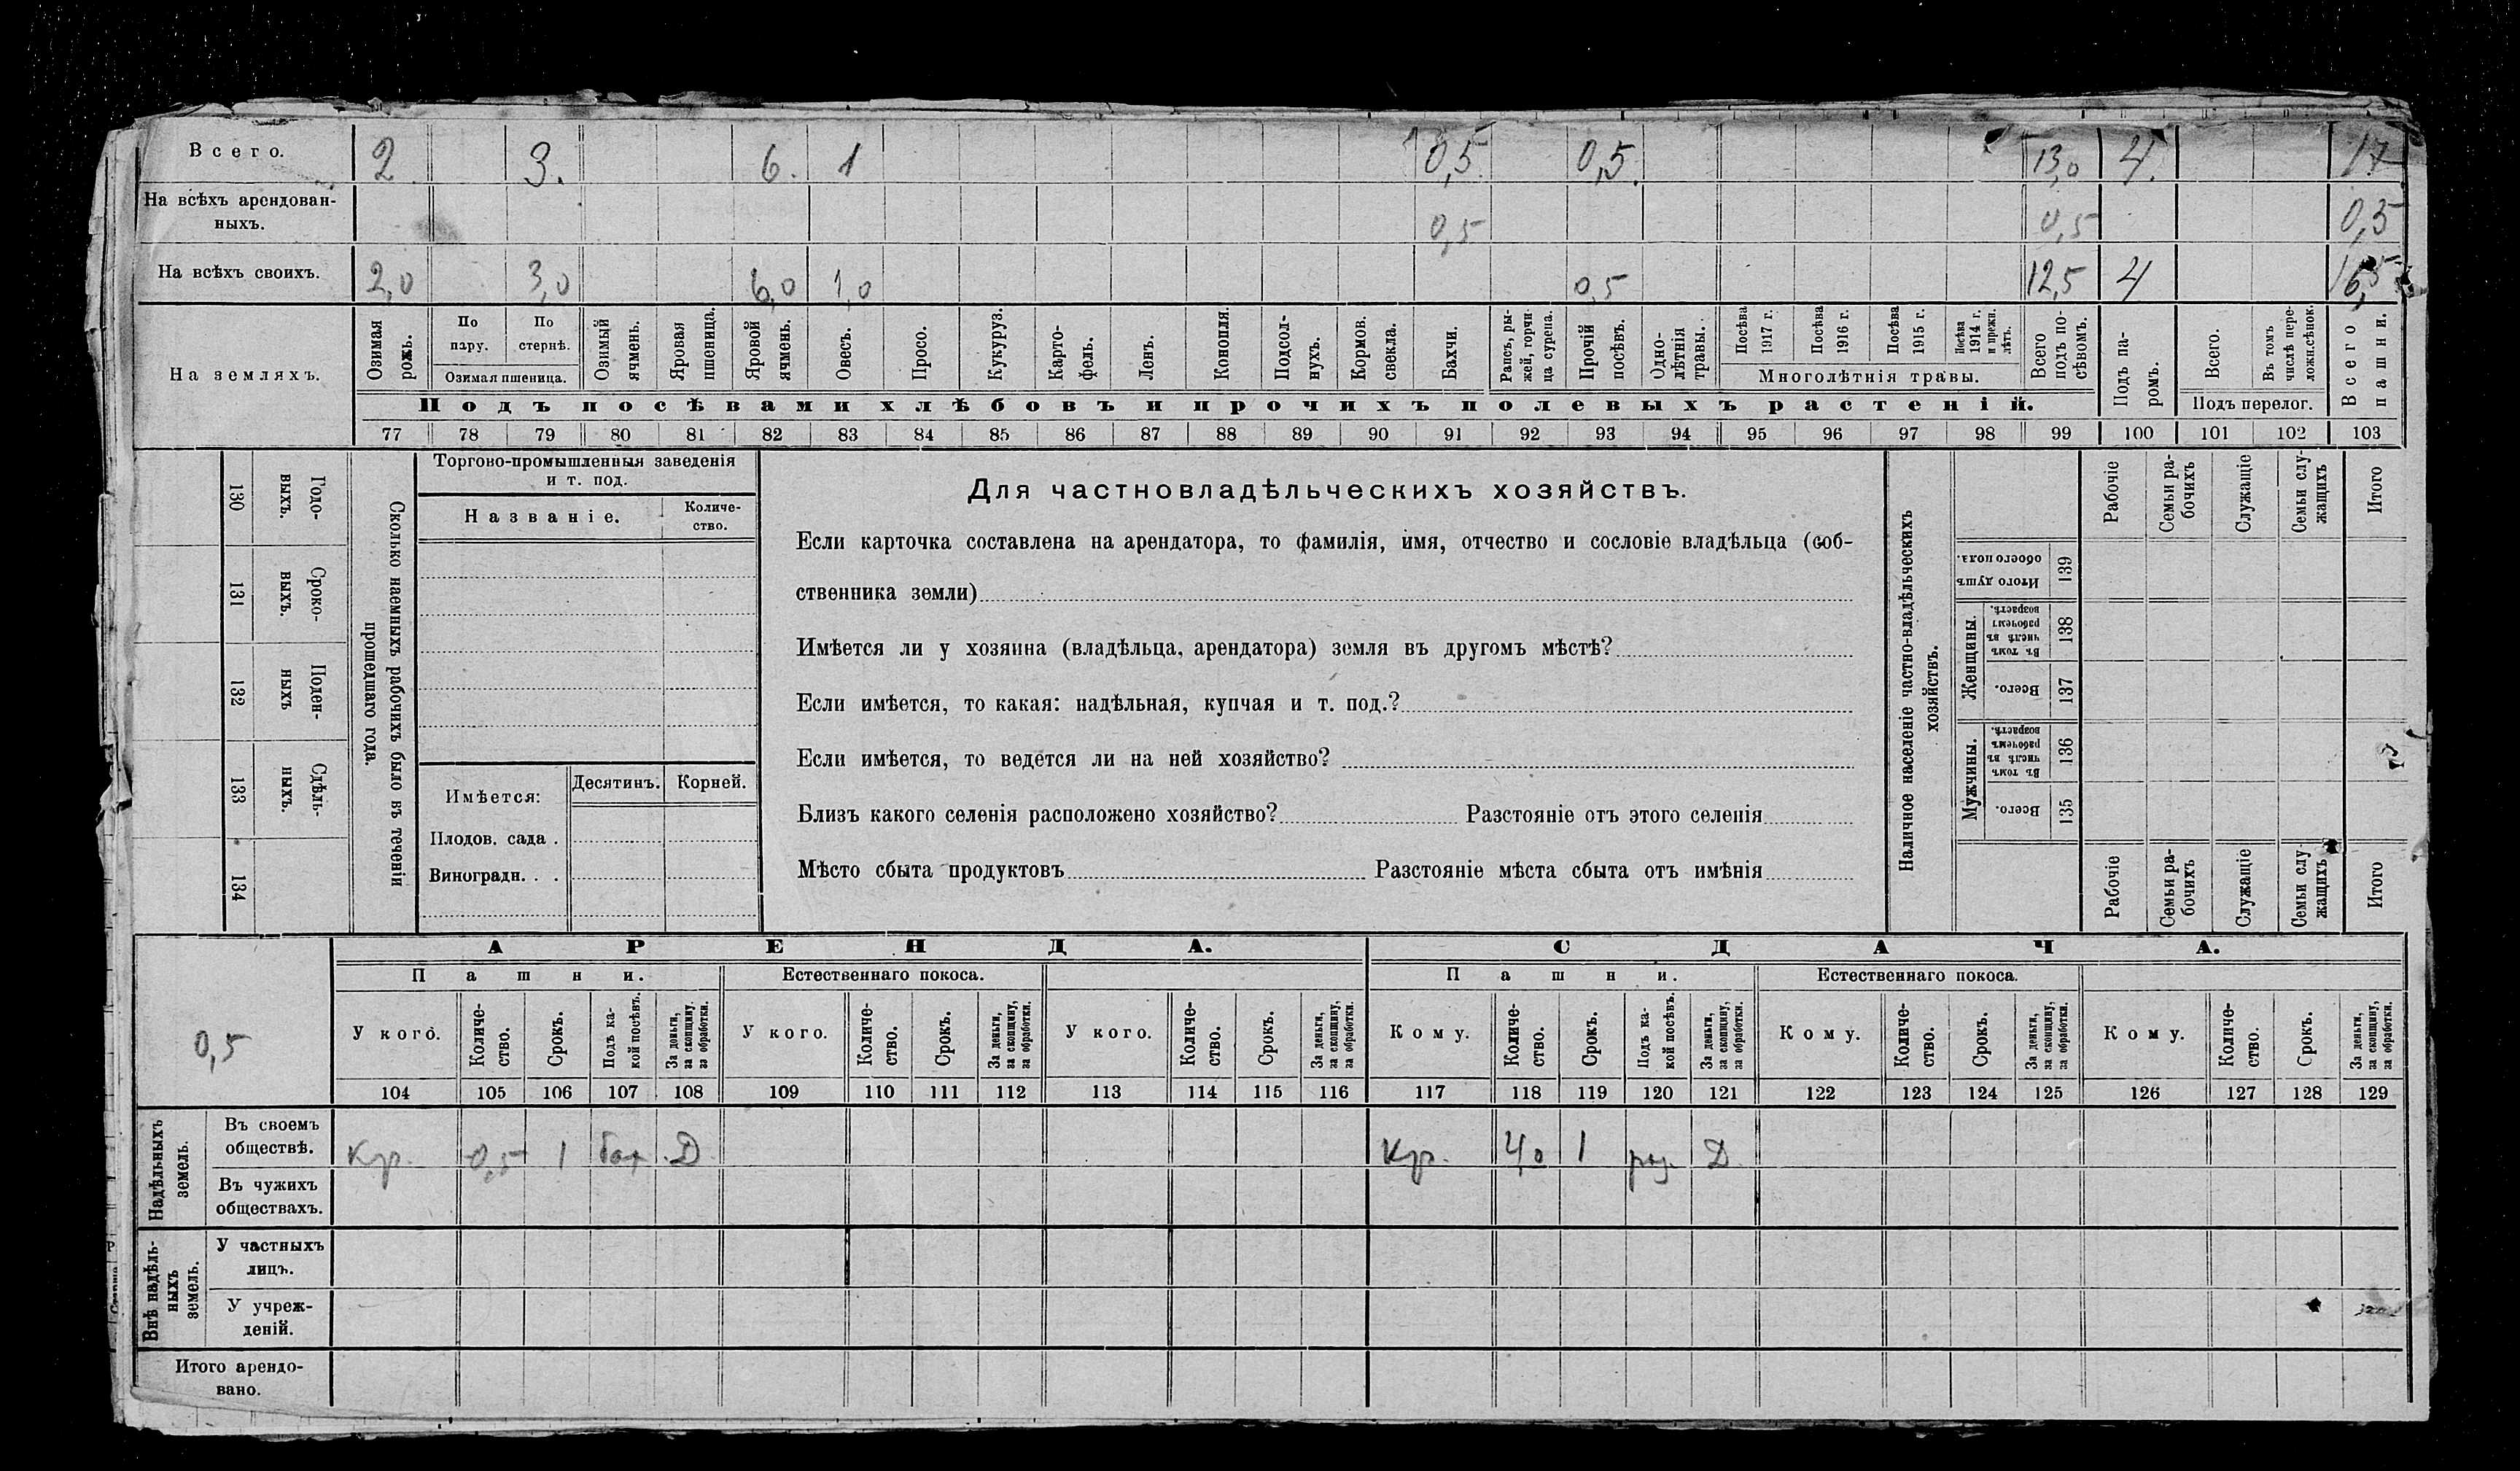 Всего. 2 3. 6. 1 0,5 0,5. 13,0 4. 17
На всѣхъ арендован-
ныхъ. 0,5 0,5 0,5
На всѣхъ своихъ. 2,0 3,0 6,0 1,0 0,5 12,5 4 16,5
На земляхъ.
Озимая рожь.
По пару.
По стернѣ.
Озимая пшеница.
Озимый ячмень.
Яровая пшеница.
Яровой ячмень.
Овесъ.
Просо.
Кукуруз.
Карто-
фель.
Ленъ.
Конопля.
Подсол-
нухъ.
Кормов.
свекла.
Бахчи.
Рапсъ, ры-
жей, горчи-
ца сурепа.
Прочій посѣвъ.
Одно-
лѣтнія травы.
Посѣва 1917 г.
Посѣва 1916 г.
Посѣва 1915 г.
Посѣва 1914 г. и прежн. лѣтъ.
Многолѣтнія травы.
Всего подъ по-
сѣвомъ.
Подъ па-
ромъ.
Всего.
Въ томъ числѣ пере-
ложн.сѣнок.
Подъ перелог.
Всего пашни.
Подъ посѣвами хлѣбовъ и прочихъ полевыхъ растеній.
77 78 79 80 81 82 83 84 85 86 87 88 89 90 91 92 93 94 95 96 97 98 99 100 101 102 103
130 Годо-
выхъ.
131 Сроко-
выхъ.
132 Поден-
ныхъ
133 Сдѣль-
ныхъ.
134
Сколько наемныхъ рабочихъ было въ теченіи
прошедшаго года.
Торгово-промышленныя заведенія
и т. под.
Названіе.
Количе-
ство.
Имѣется:
Десятинъ. Корней.
Плодов. сада .
Виноградн. . .
Для частновладѣльческихъ хозяйствъ.
Если карточка составлена на арендатора, то фамилія, имя, отчество и сословіе владѣльца (соб-
ственника земли)
Имѣется ли у хозяина (владѣльца, арендатора) земля въ другомъ мѣстѣ?
Если имѣется, то какая: надѣльная, купчая и т. под.?
Если имѣется, то ведется ли на ней хозяйство?
Близъ какого селенія расположено хозяйство? Разстояніе отъ этого селенія
Мѣсто сбыта продуктовъ Разстояніе мѣста сбыта отъ имѣнія
Наличное населеніе частно-владѣльческихъ
хозяйствъ.
Рабочіе
Семьи ра-
бочихъ
Служащіе
Семьи слу-
жащихъ
Итого
Итого душъ обоего пола. 139
Женщины.
Въ томъ числѣ въ рабочемъ возрастѣ. 138
Всего. 137
Мужчины.
Въ томъ числѣ въ рабочемъ возрастѣ. 136
Всего. 135
Рабочіе
Семьи ра-
бочихъ
Служащіе
Семьи слу-
жащихъ
Итого
АРЕНДА. СДАЧА.
Пашни. Естественнаго покоса. Пашни. Естественнаго покоса.
0,5
У кого.
Количе-
ство.
Срокъ.
Подъ ка-
кой посѣвъ.
За деньги, за скопщину, за обработки.
У кого.
Количе-
ство.
Срокъ.
За деньги, за скопщину, за обработки.
У кого.
Количе-
ство.
Срокъ.
За деньги, за скопщину, за обработки.
Кому.
Количе-
ство.
Срокъ.
Подъ ка-
кой посѣвъ.
За деньги, за скопщину, за обработки.
Кому.
Количе-
ство.
Срокъ.
За деньги, за скопщину, за обработки.
Кому.
Количе-
ство.
Срокъ.
За деньги, за скопщину, за обработки.
104 105 106 107 108 109 110 111 112 113 114 115 116 117 118 119 120 121 122 123 124 125 126 127 128 129
Надѣльныхъ
земель.
Въ своемъ
обществѣ. Кр. 0,5 1 бах. Д Кр. 4,0 1 Д
Въ чужихъ
обществахъ.
Внѣ надѣль-
ныхъ
земель.
У частныхъ
лицъ.
У учреж-
деній.
Итого арендо-
вано.